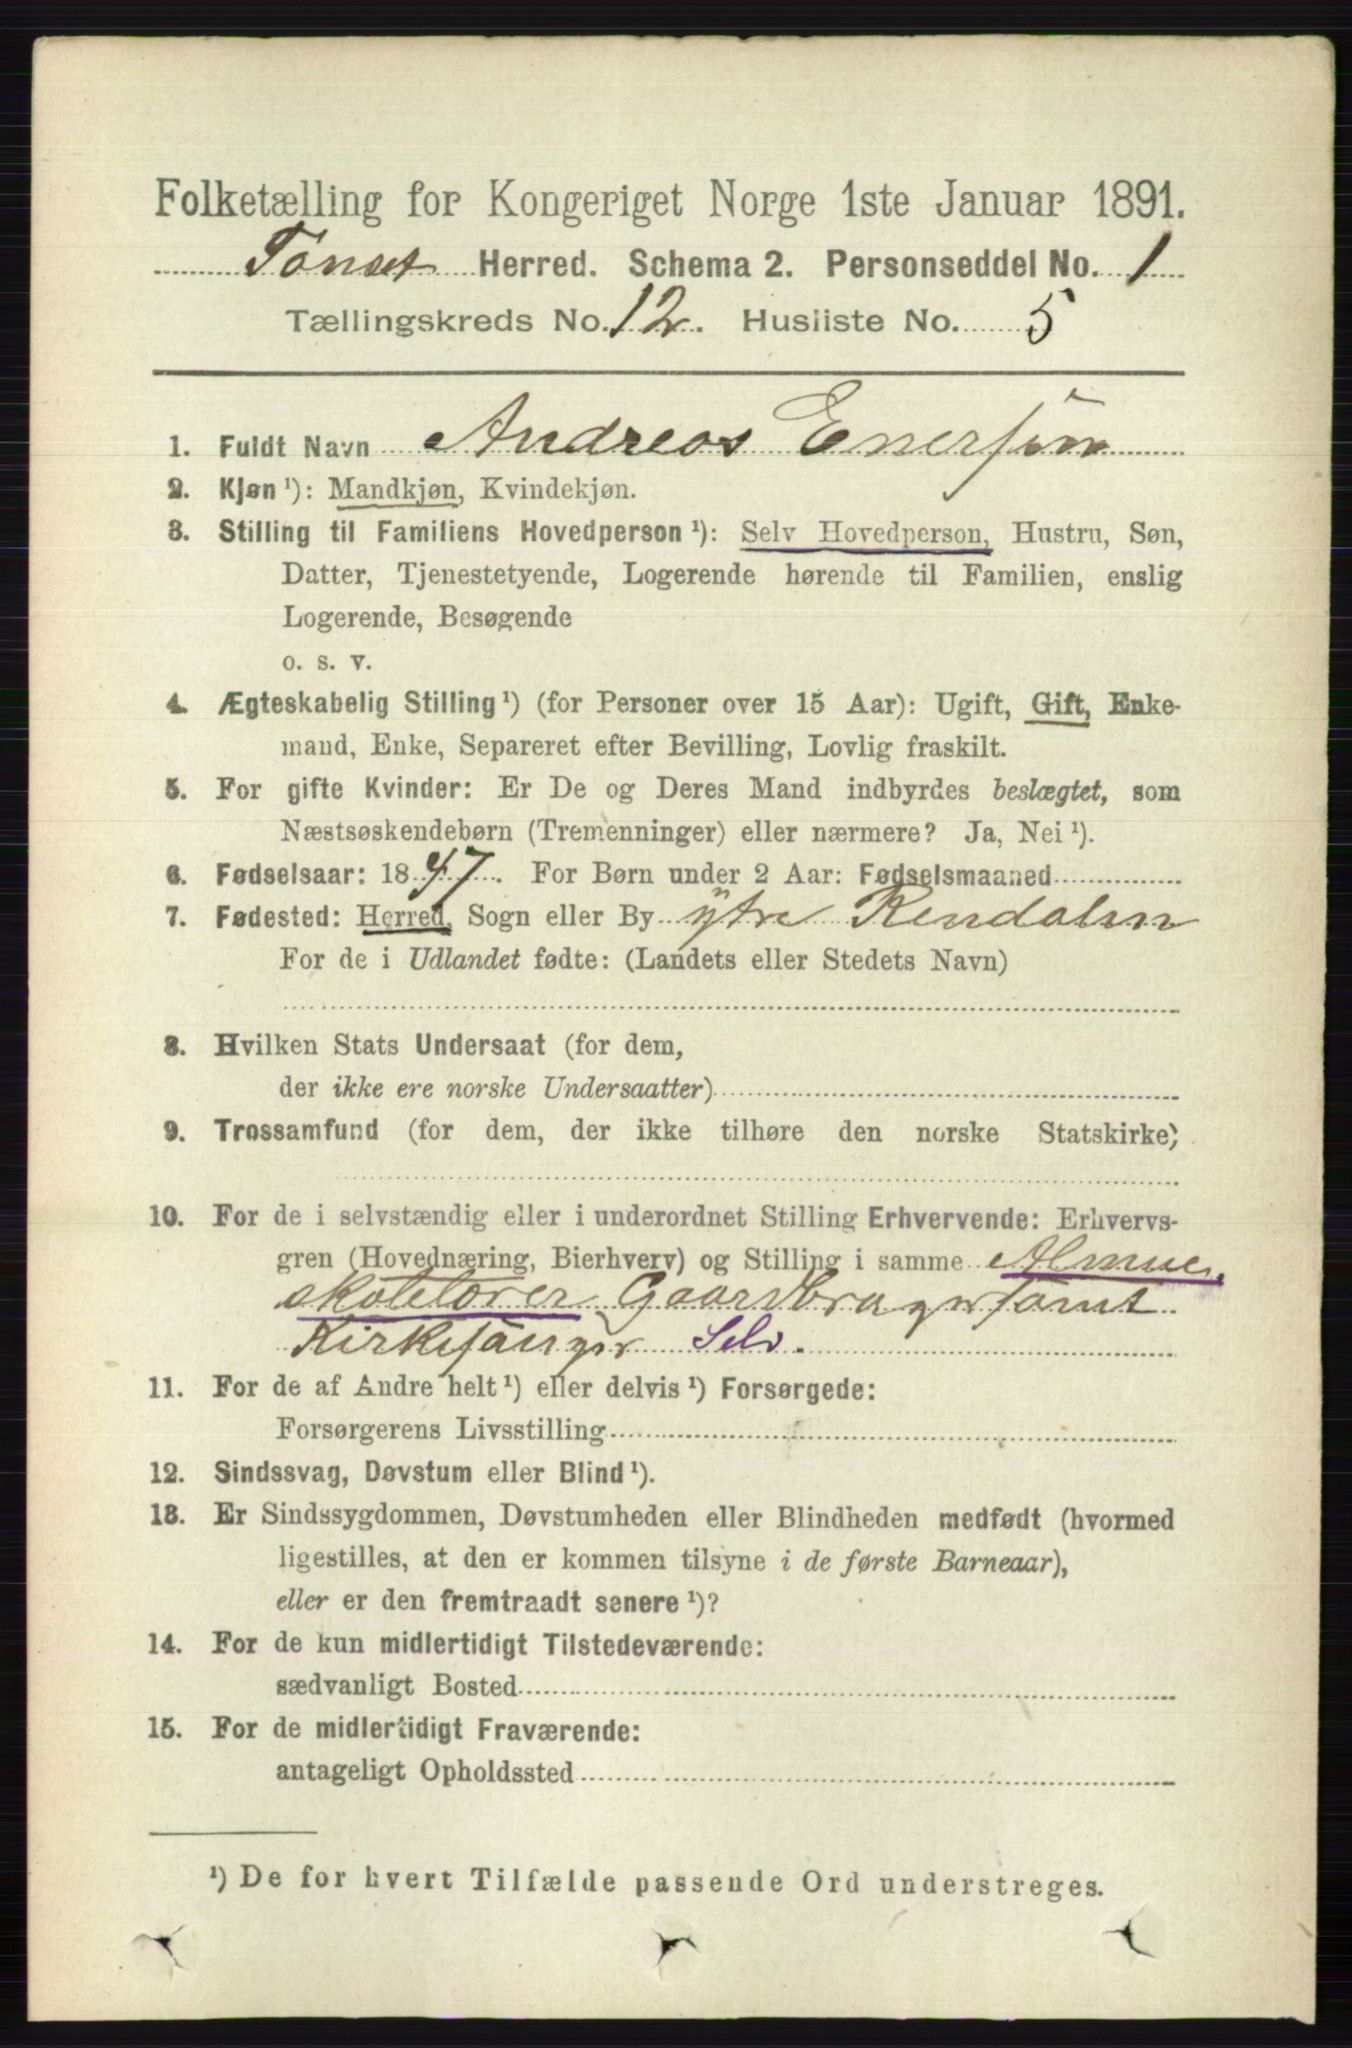 Folketælling for Kongeriget Norge 1ste Januar 1891.
Tønset Herred. Schema 2. Personseddel No. 1
Tællingskreds No. 12. Husliste No. 5
1. Fuldt Navn Andreas Enersøn
2. Kjøn ¹): Mandkjøn, Kvindekjøn.
3. Stilling til Familiens Hovedperson ¹): Selv Hovedperson, Hustru, Søn,
Datter, Tjenestetyende, Logerende hørende til Familien, enslig
Logerende, Besøgende
o. s. v.
4. Ægteskabelig Stilling ¹) (for Personer over 15 Aar): Ugift, Gift, Enke-
mand, Enke, Separeret efter Bevilling, Lovlig fraskilt.
5. For gifte Kvinder: Er De og Deres Mand indbyrdes beslægtet, som
Næstsøskendebørn (Tremenninger) eller nærmere? Ja, Nei ¹).
6. Fødselsaar: 1847. For Børn under 2 Aar: Fødselsmaaned
7. Fødested: Herred, Sogn eller By ytre Rendalen
For de i Udlandet fødte: (Landets eller Stedets Navn)
8. Hvilken Stats Undersaat (for dem,
der ikke ere norske Undersaatter)
9. Trossamfund (for dem, der ikke tilhøre den norske Statskirke)
10. For de i selvstændig eller i underordnet Stilling Erhvervende: Erhvervs-
gren (Hovednæring, Bierhverv) og Stilling i samme Almue-
skolelærer Gaardbruger samt
Kirkesanger Selv.
11. For de af Andre helt ¹) eller delvis ¹) Forsørgede:
Forsørgerens Livsstilling
12. Sindssvag, Døvstum eller Blind ¹).
13. Er Sindssygdommen, Døvstumheden eller Blindheden medfødt (hvormed
ligestilles, at den er kommen tilsyne i de første Barneaar),
eller er den fremtraadt senere ¹)?
14. For de kun midlertidigt Tilstedeværende:
sædvanligt Bosted
15. For de midlertidigt Fraværende:
antageligt Opholdssted
¹) De for hvert Tilfælde passende Ord understreges.